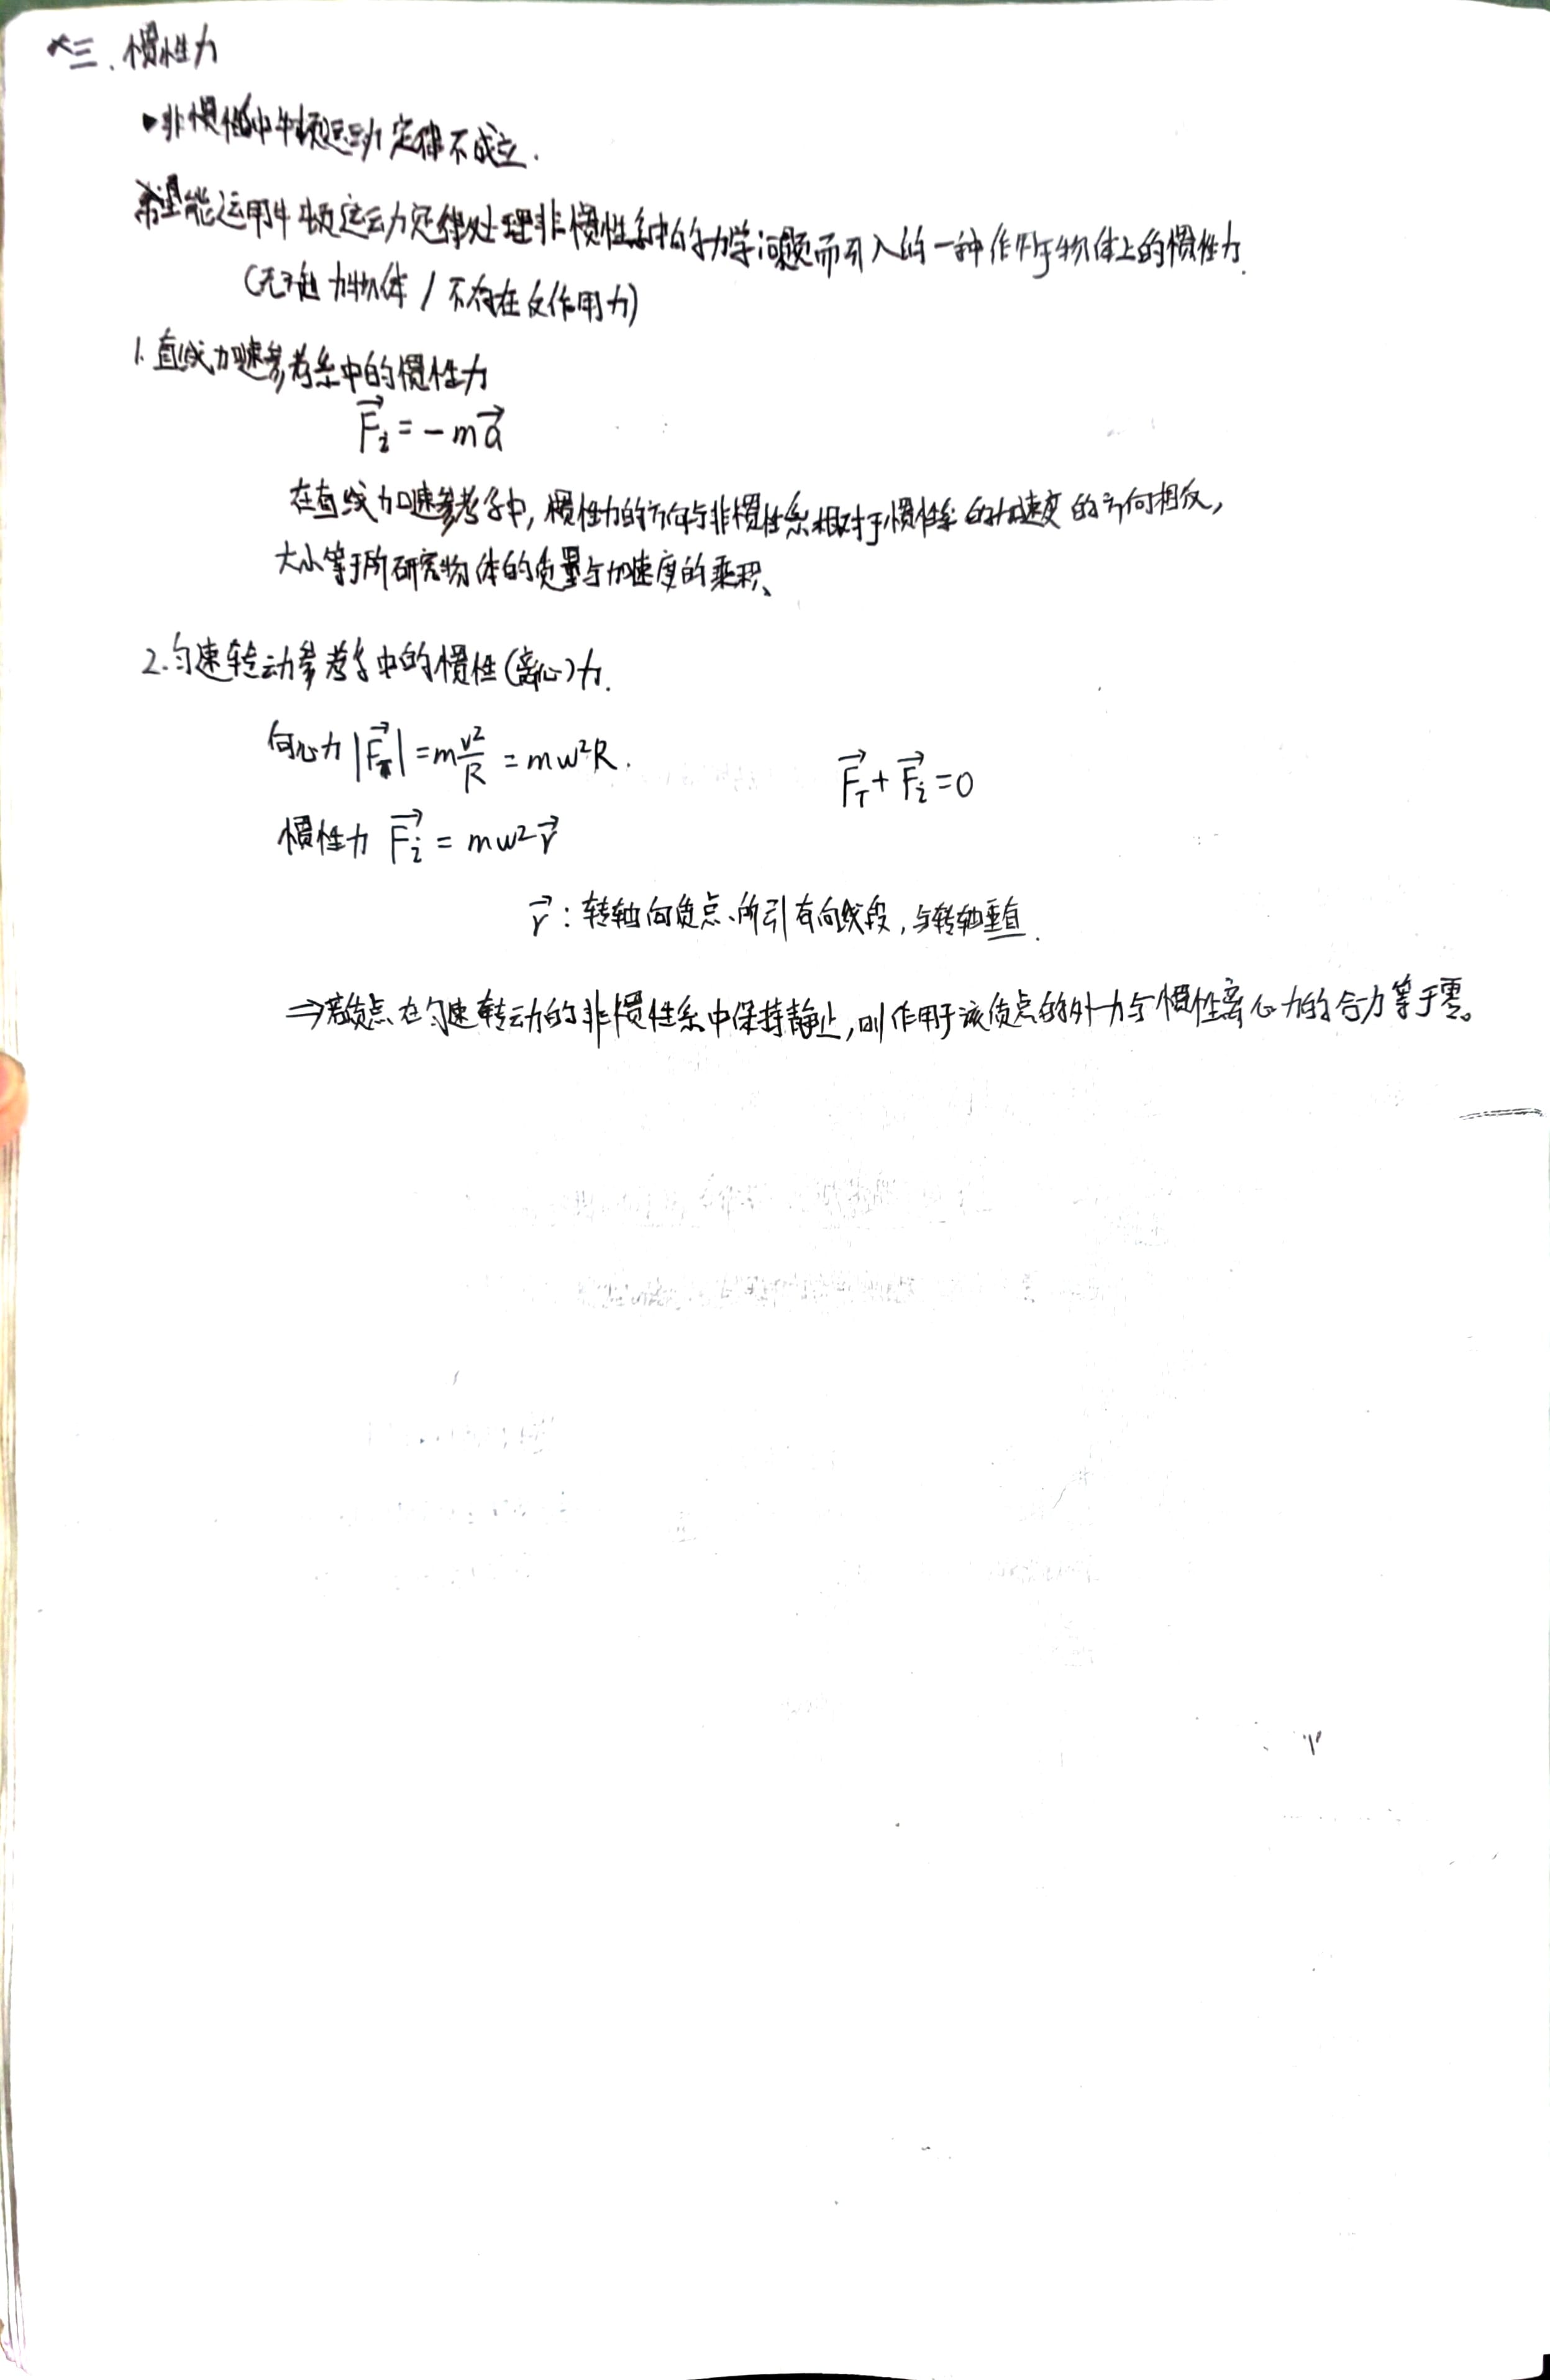 *三. 惯性力
▶非惯性中牛顿运动定律不成立.
希望能运用牛顿运动定律处理非惯性系中的力学问题而引入的一种作用于物体上的惯性力.
(无施力物体 / 不存在反作用力)
1. 直线加速参考系中的惯性力
F⃗i = -ma⃗
在直线加速参考系中, 惯性力的方向与非惯性系相对于惯性系的加速度的方向相反,
大小等于所研究物体的质量与加速度的乘积、
2. 匀速转动参考系中的惯性(离心)力.
向心力 |F⃗T| = m v²/R = mω²R.
F⃗T + F⃗i = 0
惯性力 F⃗i = mω²r⃗
r⃗ : 转轴向质点所引有向线段, 与转轴垂直.
⇒若质点在匀速转动的非惯性系中保持静止, 则作用于该质点的外力与惯性离心力的合力等于零。